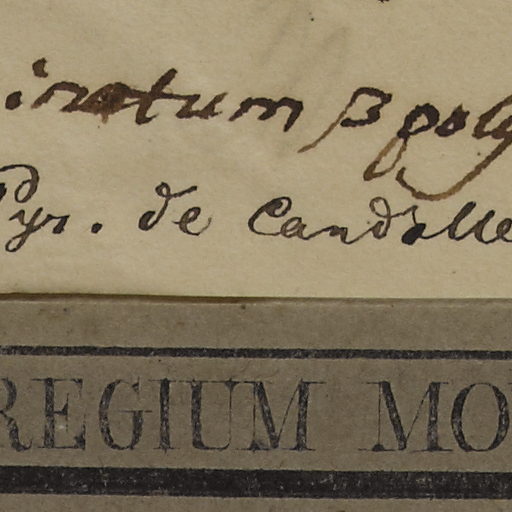 inatum β poly
Pyr. de Candolle
REGIUM MO